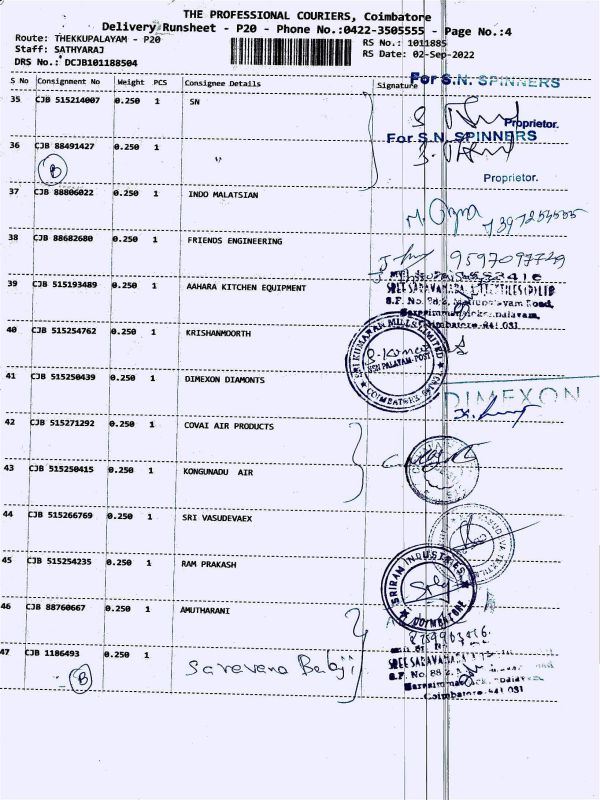 THE PROFESSIONAL COURIERS, Coimbatore
Delivery Runsheet - P20 - Phone No.:0422-3505555 - Page No.:4
Route: THEKKUPALAYAM - P20
RS No.: 1011885
Staff: SATHYARAJ
RS Date: 02-Sep-2022
DRS No.: DCJB101188504
S No Consignment No Weight PCS Consignee Details Signature
For S.N. SPINNERS
35 CJB 515214007 0.250 1 SN
Proprietor.
For S.N. SPINNERS
36 CJB 88491427 0.250 1 "
B
Proprietor.
37 CJB 88806022 0.250 1 INDO MALATSIAN
38 CJB 88682680 0.250 1 FRIENDS ENGINEERING
9597097749
39 CJB 515193489 0.250 1 AAHARA KITCHEN EQUIPMENT
Coimbatore-641 031
40 CJB 515254762 0.250 1 KRISHANMOORTH
SRI KUMARAN MILLS LIMITED
NSN PALAYAM-POST
COIMBATORE
41 CJB 515250439 0.250 1 DIMEXON DIAMONTS
DIMEXON
42 CJB 515271292 0.250 1 COVAI AIR PRODUCTS
43 CJB 515250415 0.250 1 KONGUNADU AIR
44 CJB 515266769 0.250 1 SRI VASUDEVAEX
45 CJB 515254235 0.250 1 RAM PRAKASH
SRIRAM INDUSTRIES
COIMBATORE
46 CJB 88760667 0.250 1 AMUTHARANI
47 CJB 1186493 0.250 1 Sarevena Balaji
B
Coimbatore-641 031